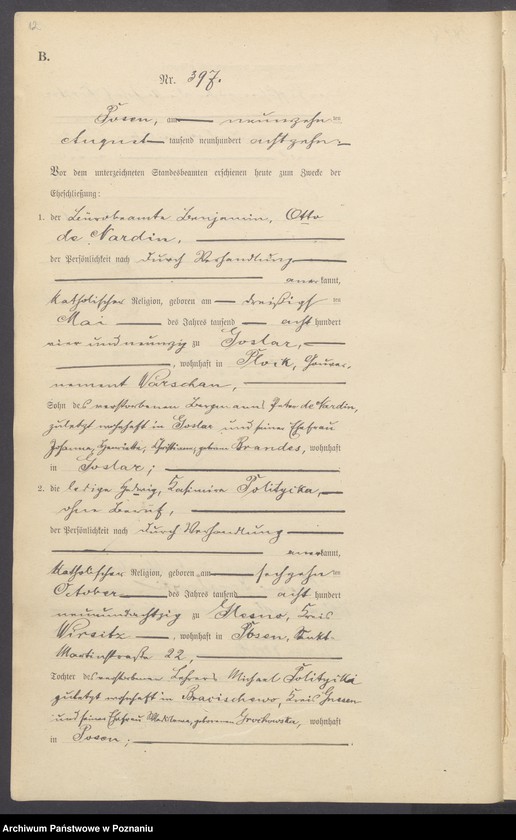 12
B.
Nr. 397.
Posen, am neunzehnten
August tausend neunhundert achtzehn
Vor dem unterzeichneten Standesbeamten erschienen heute zum Zwecke der
Eheschließung:
1. der Bürobeamte Benjamin, Otto
de Nardin,
der Persönlichkeit nach durch Verhandlung
anerkannt,
katholischer Religion, geboren am dreißigsten
Mai des Jahres tausend acht hundert
vier und neunzig zu Goslar,
, wohnhaft in Plock, Gouver-
nement Warschau,
Sohn des verstorbenen Bergmanns Peter de Nardin,
zuletzt wohnhaft in Goslar und seiner Ehefrau
Johanna, Henriette, Christiane, geborene Brandes, wohnhaft
in Goslar;
2. die ledige Hedwig, Kasimira Polityika,
ohne Beruf,
der Persönlichkeit nach durch Verhandlung
anerkannt,
katholischer Religion, geboren am sechzehnten
October des Jahres tausend acht hundert
neunundachtzig zu Kreis
Wirsitz, wohnhaft in Posen, Sankt
Martinstraße 22,
Tochter des verstorbenen Lehrers Michael Polityika
zuletzt wohnhaft in Kreis Gnesen
und seiner Ehefrau geborenen Grockowska, wohnhaft
in Posen;
Archiwum Państwowe w Poznaniu